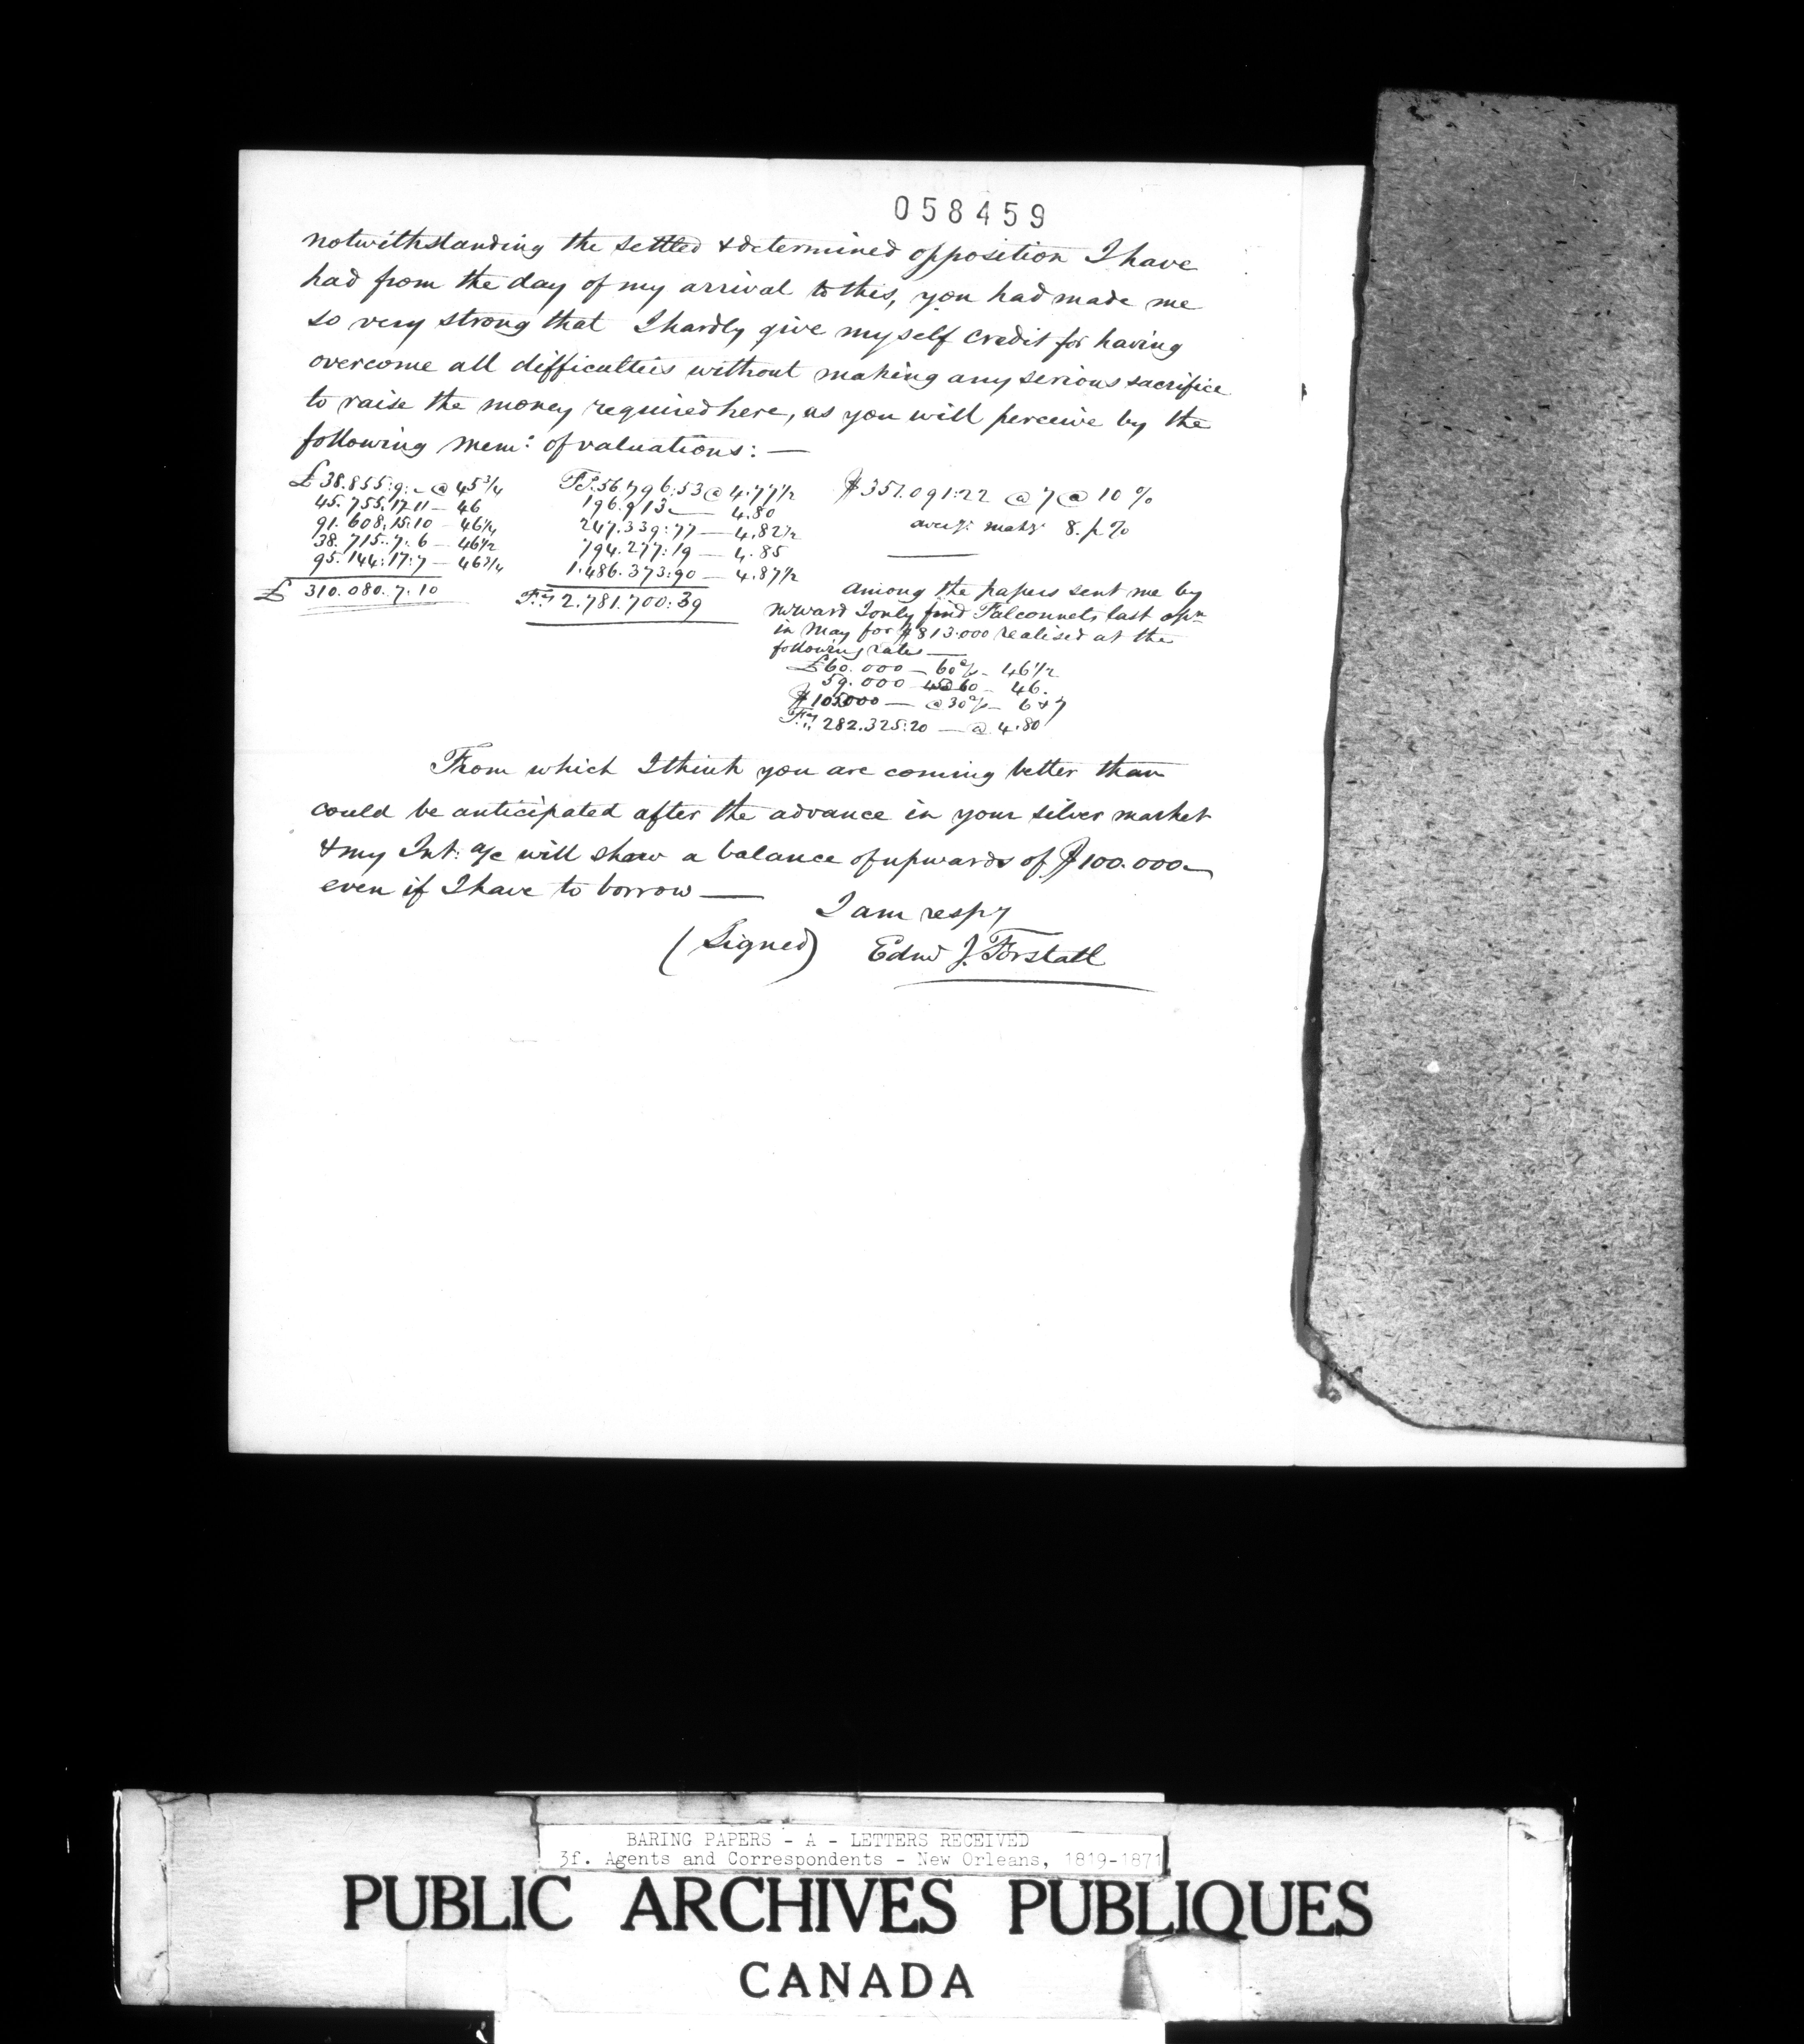 058459
notwithstanding the settled & determined opposition I have
had from the day of my arrival to this, you had made me
so very strong that I hardly give myself credit for having
overcome all difficulties without making any serious sacrifice
to raise the money required here, as you will perceive by the
following Mem: of valuations: —
£ 38.855:9:- @ 45 3/4
45.755.17.11 — 46
91.608.15.10 — 46 1/4
38.715.7.6 — 46 1/2
95.144:17:7 — 46 3/4
£ 310.080.7.10
Fs. 56.796:53 @ 4.77 1/2
196.913 — 4.80
247.339:77 — 4.82 1/2
794.277:19 — 4.85
1.486.373:90 — 4.87 1/2
Fs. 2.781.700:39
$ 357.091:22 @ 7 @ 10 %
8. p %
among the papers sent me by
I only find Falconnets last opn
in May for $ 813.000 realised at the
following rates —
£ 60.000 — 60 d/ — 46 1/2
59.000 45 @ 60 — 46.
$ 105000 — @ 30 d/ — 6 & 7
Fs. 282.325:20 — @ 4.80
From which I think you are coming better than
could be anticipated after the advance in your silver market
& my Int: a/c will show a balance of upwards of $ 100.000 —
even if I have to borrow —
I am respy
(Signed) Edwd J. Forstall
BARING PAPERS - A - LETTERS RECEIVED
3f. Agents and Correspondents - New Orleans, 1819-1871
PUBLIC ARCHIVES PUBLIQUES
CANADA